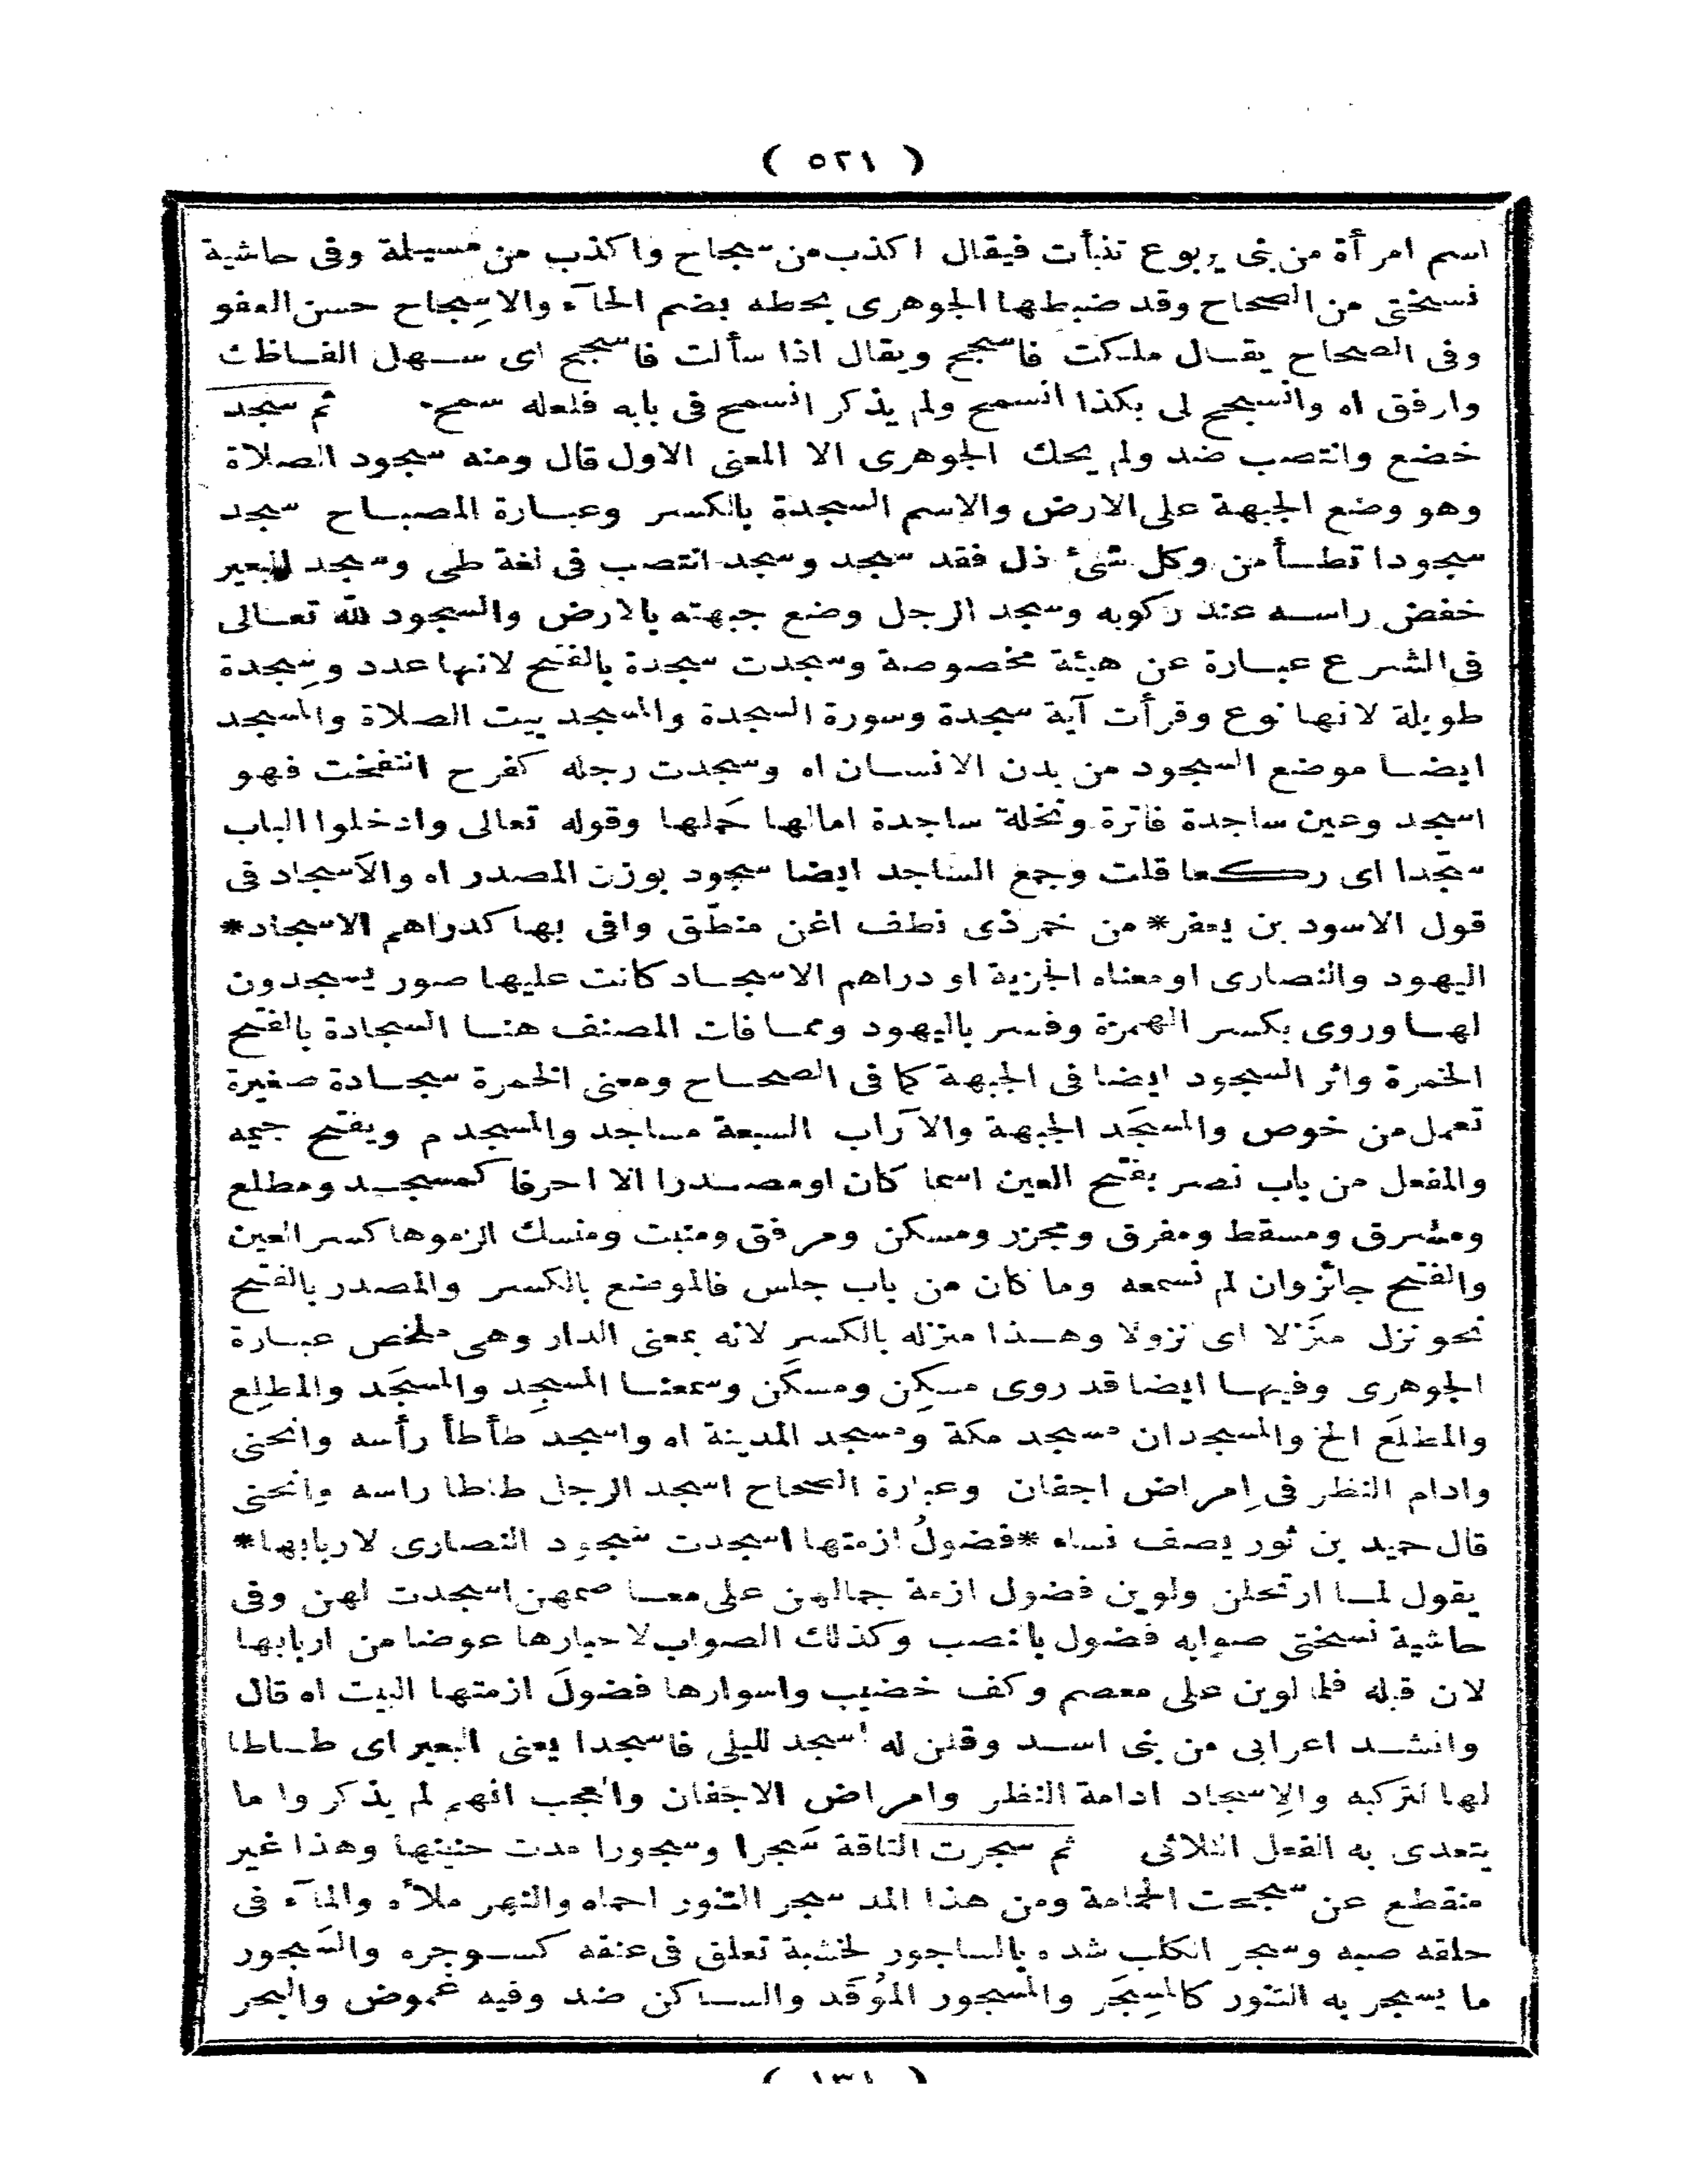 ( ٥٢١ )
اسم امرأة من بنى يربوع تنبأت فيقال اكذب من سجاح واكذب من مسيلمة وفى حاشية
نسختى من الصحاح وقد ضبطها الجوهرى بخطه بضم الحآء والاسِجاح حسن العفو
وفى الصحاح يقال ملكت فاسجح ويقال اذا سألت فاسجح اى سهل الفاظك
وارفق اه وانسجح لى بكذا انسمح ولم يذكر انسمح فى بابه فلعله سمح. ثم سجد
خضع وانتصب ضد ولم يحك الجوهرى الا المعنى الاول قال ومنه سجود الصلاة
وهو وضع الجبهة على الارض والاسم السجدة بالكسر وعبارة المصباح سجد
سجودا تطأمن وكل شئ ذل فقد سجد وسجد انتصب فى لغة طى وسجد البعير
خفض راسه عند ركوبه وسجد الرجل وضع جبهته بالارض والسجود لله تعالى
فى الشرع عبارة عن هيئة مخصوصة وسجدت سجدة بالفتح لانها عدد وسِجدة
طويلة لانها نوع وقرأت آية سجدة وسورة السجدة والمسجد بيت الصلاة والمسجد
ايضا موضع السجود من بدن الانسان اه وسجدت رجله كفرح انتفخت فهو
اسجد وعين ساجدة فاترة ونخلة ساجدة امالها حَملها وقوله تعالى وادخلوا الباب
سجّدا اى ركعا قلت وجمع الساجد ايضا سجود بوزن المصدر اه والاَسجاد فى
قول الاسود بن يعفر* من خمر ذى نطف اغن منطّق وافى بها كدراهم الاسجاد*
اليهود والنصارى او معناه الجزية او دراهم الاسجاد كانت عليها صور يسجدون
لها وروى بكسر الهمزة وفسر باليهود ومما فات المصنف هنا السجادة بالفتح
الخمرة واثر السجود ايضا فى الجبهة كما فى الصحاح ومعنى الخمرة سجادة صغيرة
تعمل من خوص والمسجَد الجبهة والآراب السبعة مساجد والمسجد م ويفتح جيمه
والمفعل من باب نصر بفتح العين اسما كان او مصدرا الا احرفا كمسجد ومطلع
ومشرق ومسقط ومفرق ومجزر ومسكن ومرفق ومنبت ومنسك الزموها كسر العين
والفتح جائز وان لم نسمعه وما كان من باب جلس فالموضع بالكسر والمصدر بالفتح
نحو نزل منزَلا اى نزولا وهذا منزله بالكسر لانه بمعنى الدار وهى ملخص عبارة
الجوهرى وفيها ايضا قد روى مسكِن ومسكَن وسمعنا المسجِد والمسجَد والمطلِع
والمطلَع الخ والمسجدان مسجد مكة ومسجد المدينة اه واسجد طأطأ رأسه وانحنى
وادام النظر فى اِمراض اجفان وعبارة الصحاح اسجد الرجل طاطا راسه وانحنى
قال حميد بن ثور يصف نساء *فضولُ ازمتها اسجدت سجود النصارى لاربابها*
يقول لما ارتحلن ولوين فضول ازمة جمالهن على معاصمهن اسجدت لهن وفى
حاشية نسختى صوابه فضول بالنصب وكذلك الصواب لاحبارها عوضا من اربابها
لان قبله فلما لوين على معصم وكف خضيب واسوارها فضولَ ازمتها البيت اه قال
وانشد اعرابى من بنى اسد وقلن له اسجد لليلى فاسجدا يعنى البعير اى طاطا
لها لتركبه والاِسجاد ادامة النظر وامراض الاجفان والعجب انهم لم يذكروا ما
يتعدى به الفعل الثلاثى ثم سجرت الناقة سَجرا وسجورا مدت حنينها وهذا غير
منقطع عن سجعت الحمامة ومن هذا المد سجر التنور احماه والنهر ملأه والمآء فى
حلقه صبه وسجر الكلب شده بالساجور لخشبة تعلق فى عنقه كسوجره والسَجور
ما يسجر به التنور كالمسِجَر والمسجور المُوقَد والساكن ضد وفيه غموض والبحر
( ١٣١ )